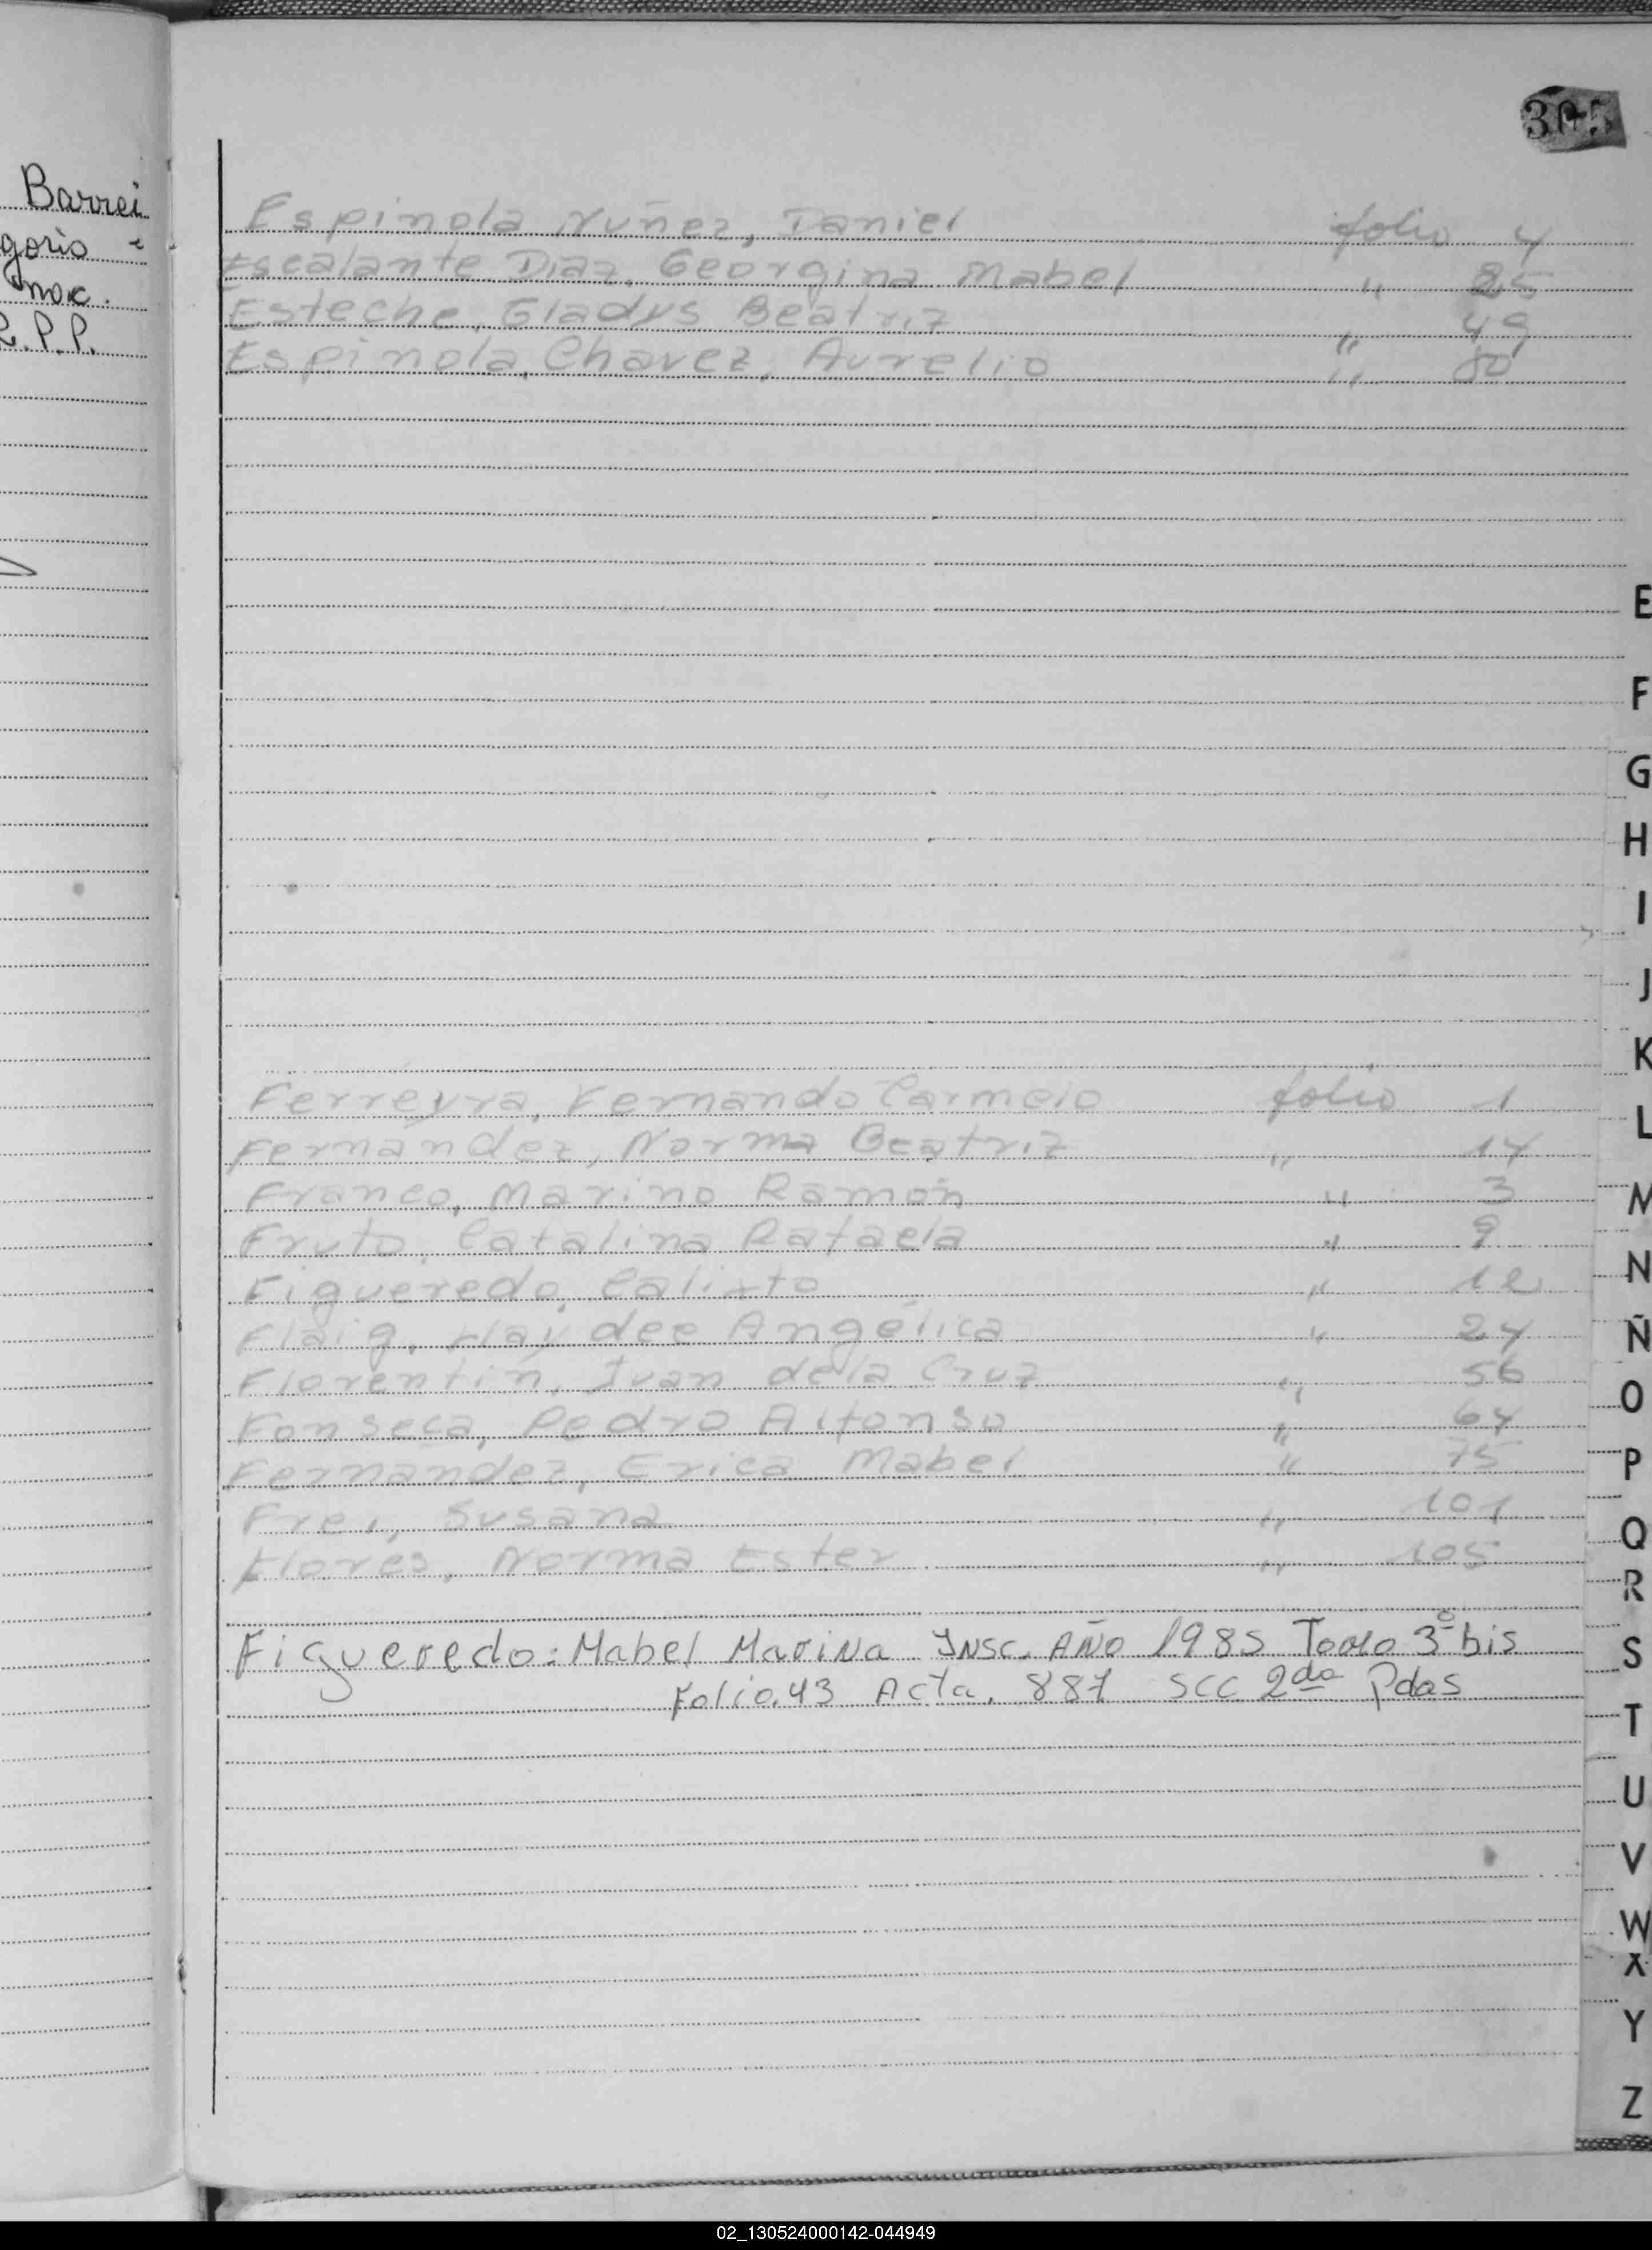 305
Barrei
gorio e
nox.
R.P.P.
Espinola Nuñez, Daniel folio 4
Escalante Diaz, Georgina Mabel " 25
Esteche, Gladys Beatriz " 49
Espinola, Chavez, Aurelio " 80
Ferreyra, Fernando Carmelo folio 1
Fernández, Norma Beatriz " 14
Franco, Marino Ramón " 3
Fruto, Catalina Rafaela " 9
Figueredo, Calixto " 12
Flaig, Haydee Angélica " 24
Florentín, Juan de la Cruz " 56
Fonseca, Pedro Alfonso " 64
Fernandez, Erica Mabel " 75
Frei, Susana " 101
Flores, Norma Ester " 105
Figueredo: Mabel Marina INSC. AÑO 1985 Tomo 3º bis
Folio. 43 Acta. 887 SCC 2da Pdas
E
F
G
H
I
J
K
L
M
N
Ñ
O
P
Q
R
S
T
U
V
W
X
Y
Z
02_130524000142-044949